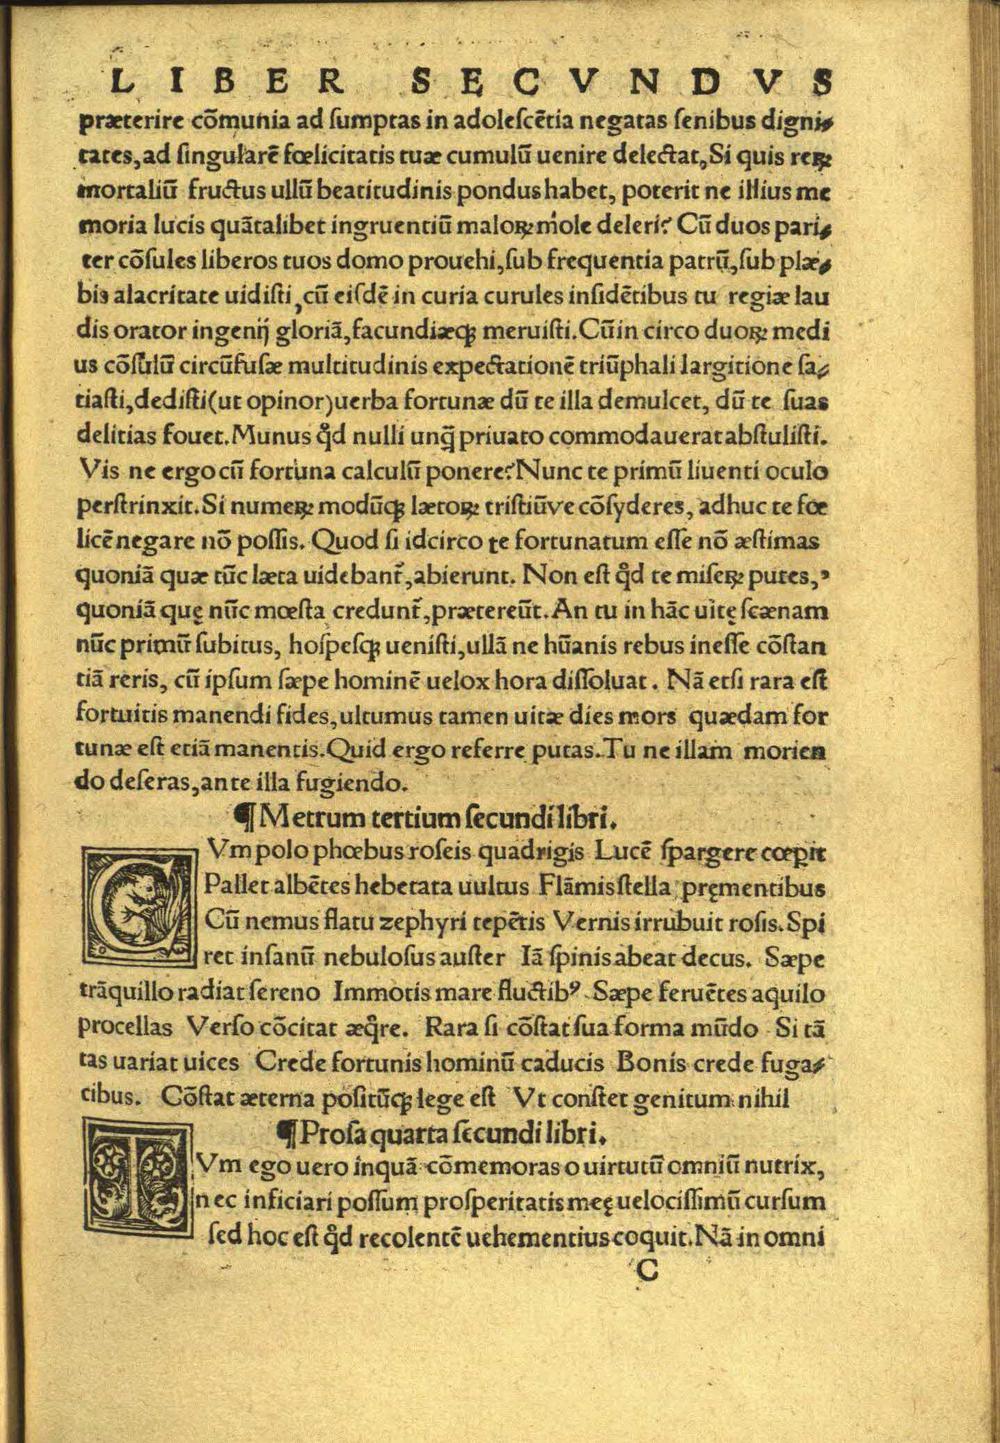 LIBER SECVNDVS
præterire cõmunia ad ſumptas in adoleſcẽtia negatas ſenibus digni⸗
tates, ad ſingularẽ fœlicitatis tuæ cumulũ uenire delectat, Si quis reꝝ
mortaliũ fructus ullũ beatitudinis pondus habet, poterit ne illius me
moria lucis quãtalibet ingruentiũ maloꝝ mole deleri? Cũ duos pari⸗
ter cõſules liberos tuos domo prouehi, ſub frequentia patrũ, ſub plæ⸗
bis alacritate uidiſti, cũ eiſdẽ in curia curules inſidẽtibus tu regiæ lau
dis orator ingenij gloriã, facundiæq; meruiſti. Cũ in circo duoꝝ medi
us cõſulũ circũfuſæ multitudinis expectationẽ triũphali largitione ſa⸗
tiaſti, dediſti (ut opinor) uerba fortunæ dũ te illa demulcet, dũ te ſuas
delitias fouet. Munus qd̉ nulli unq̃ priuato commodauerat abſtuliſti.
Vis ne ergo cũ fortuna calculũ ponere? Nunc te primũ liuenti oculo
perſtrinxit. Si numeꝝ modũq; lætoꝝ triſtiũve cõſyderes, adhuc te fœ
licẽ negare nõ poſſis. Quod ſi idcirco te fortunatum eſſe nõ æſtimas
quoniã quæ tũc læta uidebant᷑, abierunt. Non eſt qd̉ te miſeꝝ putes,
quoniã quę nũc mœſta credunt᷑, prætereũt. An tu in hãc uitę ſcænam
nũc primũ ſubitus, hoſpeſq; ueniſti, ullã ne hũanis rebus ineſſe cõſtan
tiã reris, cũ ipſum ſæpe hominẽ uelox hora diſſoluat. Nã etſi rara eſt
fortuitis manendi fides, ultumus tamen uitæ dies mors quædam for
tunæ eſt etiã manentis. Quid ergo referre putas. Tu ne illam morien
do deſeras, an te illa fugiendo.
¶ Metrum tertium ſecundi libri.
CVm polo phœbus roſeis quadrigis Lucẽ ſpargere cœperit
Pallet albẽtes hebetata uultus Flãmis ſtella pręmentibus
Cũ nemus flatu zephyri tepẽtis Vernis irrubuit roſis. Spi
ret inſanũ nebuloſus auſter Iã ſpinis abeat decus. Sæpe
trãquillo radiat ſereno Immotis mare fluctibꝰ. Sæpe feruẽtes aquilo
procellas Verſo cõcitat æq̉re. Rara ſi cõſtat ſua forma mũdo Si tã
tas uariat uices Crede fortunis hominũ caducis Bonis crede fuga⸗
cibus. Cõſtat æterna poſitũq; lege eſt Vt conſtet genitum nihil
¶ Proſa quarta ſecundi libri.
TVm ego uero inquã cõmemoras o uirtutũ omniũ nutrix,
nec inficiari poſſum proſperitatis meę uelociſſimũ curſum
ſed hoc eſt qd̉ recolentẽ uehementius coquit. Nã in omni
C